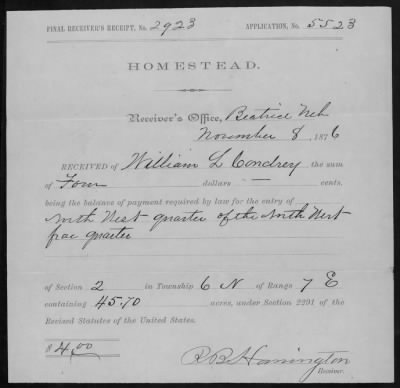 FINAL RECEIVER'S RECEIPT, No. 2923 APPLICATION, No. 5523
HOMESTEAD.
Receiver's Office, Beatrice Neb
November 8, 1876
RECEIVED of William L Condrey the sum
of Four dollars — cents,
being the balance of payment required by law for the entry of
North West quarter of the North West
frac quarter
of Section 2 in Township 6 N of Range 7 E
containing 45.70 acres, under Section 2291 of the
Revised Statutes of the United States.
$ 4.00
R B Harrington
Receiver.